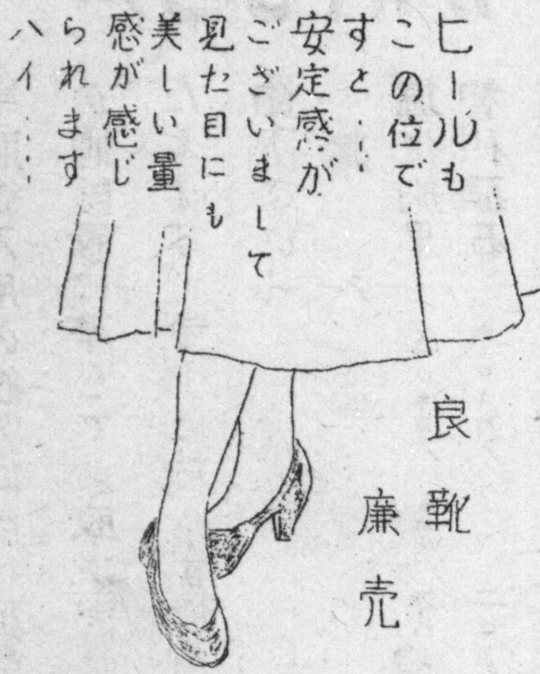 ヒールも
この位で
すと…
安定感が
ございまして
見た目にも
美しい量
感が感じ
られます
ハイ……
良靴
廉売